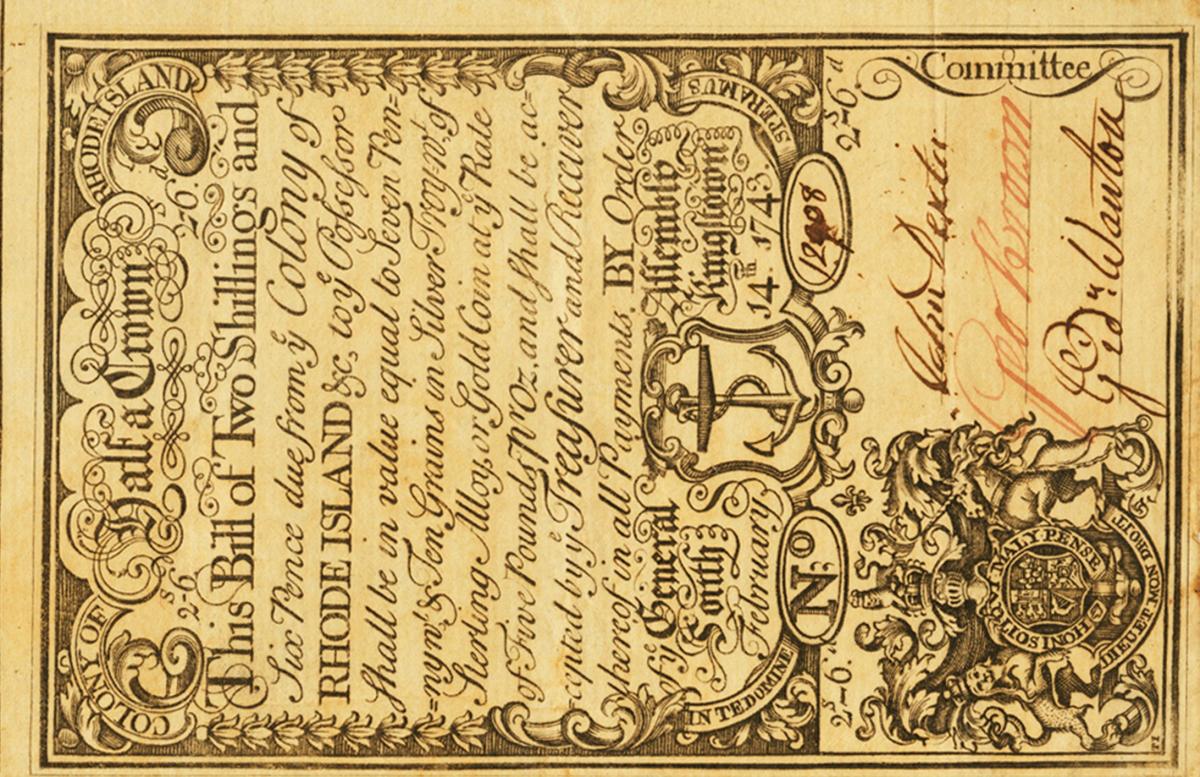 COLONY OF RHODE ISLAND
Half a Crown
2ˢ-6. 2ˢ-6ᵈ.
This Bill of Two Shillings and
Six Pence due from yᵉ Colony of
RHODE ISLAND &c, to yᵉ Poſseſsor
ſhall be in value equal to Seven Pen=
=nywᵗ. & Ten Grains in Silver Troy=wᵗ. of
Sterling Alloy, or Gold Coin at yᵉ Rate
of Five Pounds ⅌ Oz. and ſhall be ac=
=cepted by yᵉ Treaſurer and Receiver
thereof in all Payments. BY Order
of yᵉ General Aſſembly
South Kingstown
February 14ᵗʰ 1743
IN TE DOMINE SPERAMUS
Nᵒ 12908
2ˢ-6. 2ˢ-6ᵈ
John Dexter
Geo Brown
Gidⁿ. Wanton
HONI SOIT QUI MAL Y PENSE
DIEU ET MON DROIT
Committee